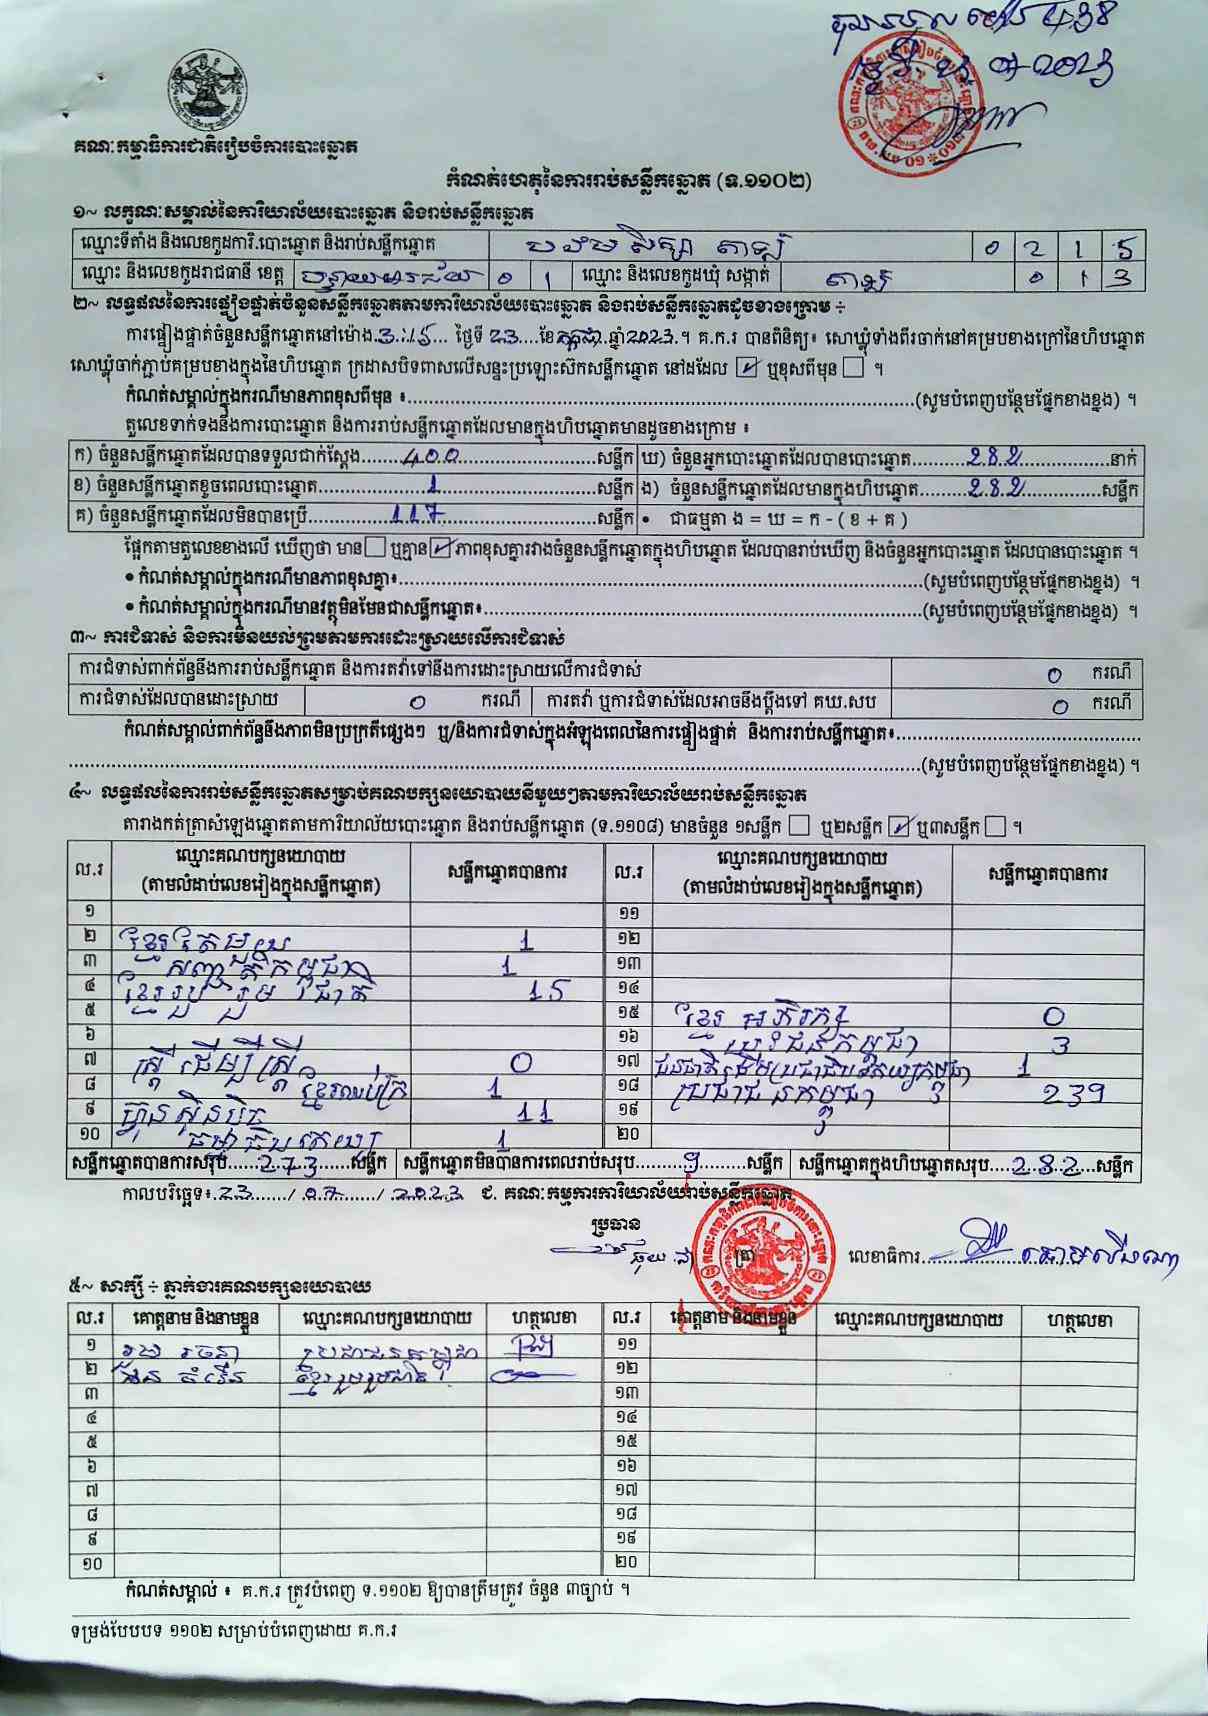 គណៈកម្មាធិការជាតិរៀបចំការបោះឆ្នោត
កំណត់ហេតុនៃការរាប់សន្លឹកឆ្នោត (ទ.១១០២)
១~ លក្ខណៈសម្គាល់នៃការិយាល័យបោះឆ្នោត និងរាប់សន្លឹកឆ្នោត
ឈ្មោះទីតាំង និងលេខកូដការិ.បោះឆ្នោត និងរាប់សន្លឹកឆ្នោត 0 2 1 5
ឈ្មោះ និងលេខកូដរាជធានី ខេត្ត បន្ទាយមានជ័យ 0 1 ឈ្មោះ និងលេខកូដឃុំ សង្កាត់ 0 1 3
២~ លទ្ធផលនៃការផ្ទៀងផ្ទាត់ចំនួនសន្លឹកឆ្នោតតាមការិយាល័យបោះឆ្នោត និងរាប់សន្លឹកឆ្នោតដូចខាងក្រោម ÷
ការផ្ទៀងផ្ទាត់ចំនួនសន្លឹកឆ្នោតនៅម៉ោង 3:15 ថ្ងៃទី 23 ខែ កក្កដា ឆ្នាំ 2023 ។ គ.ក.រ បានពិនិត្យ៖ សោឃ្លុំទាំងពីរចាក់នៅគម្របខាងក្រៅនៃហិបឆ្នោត
សោឃ្លុំចាក់ភ្ជាប់គម្របខាងក្នុងនៃហិបឆ្នោត ក្រដាសបិទពាសលើសន្ទះប្រឡោះស៊កសន្លឹកឆ្នោត នៅដដែល ☑ ឬខុសពីមុន ☐ ។
កំណត់សម្គាល់ក្នុងករណីមានភាពខុសពីមុន ៖ (សូមបំពេញបន្ថែមផ្នែកខាងខ្នង) ។
តួលេខទាក់ទងនឹងការបោះឆ្នោត និងការរាប់សន្លឹកឆ្នោតដែលមានក្នុងហិបឆ្នោតមានដូចខាងក្រោម ៖
ក) ចំនួនសន្លឹកឆ្នោតដែលបានទទួលជាក់ស្តែង 400 សន្លឹក ឃ) ចំនួនអ្នកបោះឆ្នោតដែលបានបោះឆ្នោត 282 នាក់
ខ) ចំនួនសន្លឹកឆ្នោតខូចពេលបោះឆ្នោត 1 សន្លឹក ង) ចំនួនសន្លឹកឆ្នោតដែលមានក្នុងហិបឆ្នោត 282 សន្លឹក
គ) ចំនួនសន្លឹកឆ្នោតដែលមិនបានប្រើ 117 សន្លឹក • ជាធម្មតា ង = ឃ = ក - ( ខ + គ )
ផ្អែកតាមតួលេខខាងលើ ឃើញថា មាន ☐ ឬគ្មាន ☑ ភាពខុសគ្នារវាងចំនួនសន្លឹកឆ្នោតក្នុងហិបឆ្នោត ដែលបានរាប់ឃើញ និងចំនួនអ្នកបោះឆ្នោត ដែលបានបោះឆ្នោត ។
• កំណត់សម្គាល់ក្នុងករណីមានភាពខុសគ្នា៖ (សូមបំពេញបន្ថែមផ្នែកខាងខ្នង) ។
• កំណត់សម្គាល់ក្នុងករណីមានវត្ថុមិនមែនជាសន្លឹកឆ្នោត៖ (សូមបំពេញបន្ថែមផ្នែកខាងខ្នង) ។
៣~ ការជំទាស់ និងការមិនយល់ព្រមតាមការដោះស្រាយលើការជំទាស់
ការជំទាស់ពាក់ព័ន្ធនឹងការរាប់សន្លឹកឆ្នោត និងការតវ៉ាទៅនឹងការដោះស្រាយលើការជំទាស់ 0 ករណី
ការជំទាស់ដែលបានដោះស្រាយ 0 ករណី ការតវ៉ា ឬការជំទាស់ដែលអាចនឹងប្តឹងទៅ គឃ.សប 0 ករណី
កំណត់សម្គាល់ពាក់ព័ន្ធនឹងភាពមិនប្រក្រតីផ្សេងៗ ឬ/និងការជំទាស់ក្នុងអំឡុងពេលនៃការផ្ទៀងផ្ទាត់ និងការរាប់សន្លឹកឆ្នោត៖
(សូមបំពេញបន្ថែមផ្នែកខាងខ្នង) ។
៤~ លទ្ធផលនៃការរាប់សន្លឹកឆ្នោតសម្រាប់គណបក្សនយោបាយនីមួយៗតាមការិយាល័យរាប់សន្លឹកឆ្នោត
តារាងកត់ត្រាសំឡេងឆ្នោតតាមការិយាល័យបោះឆ្នោត និងរាប់សន្លឹកឆ្នោត (ទ.១១០៨) មានចំនួន ១សន្លឹក ☐ ឬ២សន្លឹក ☑ ឬ៣សន្លឹក ☐ ។
ល.រ ឈ្មោះគណបក្សនយោបាយ (តាមលំដាប់លេខរៀងក្នុងសន្លឹកឆ្នោត) សន្លឹកឆ្នោតបានការ ល.រ ឈ្មោះគណបក្សនយោបាយ (តាមលំដាប់លេខរៀងក្នុងសន្លឹកឆ្នោត) សន្លឹកឆ្នោតបានការ
១ ១១
២ ខ្មែរតែមួយ 1 ១២
៣ សញ្ជាតិកម្ពុជា 1 ១៣
៤ ខ្មែររួបរួមជាតិ 15 ១៤
៥ ១៥ ខ្មែរអភិរក្ស 0
៦ ១៦ យុវជនកម្ពុជា 3
៧ ស្ត្រីដើម្បីស្ត្រី 0 ១៧ ជនជាតិដើមប្រជាធិបតេយ្យកម្ពុជា 1
៨ ខ្មែរឈប់ក្រ 1 ១៨ ប្រជាជនកម្ពុជា 239
៩ ហ៊្វុនស៊ិនប៉ិច 11 ១៩
១០ ធម្មាធិបតេយ្យ 1 ២០
សន្លឹកឆ្នោតបានការសរុប 273 សន្លឹក សន្លឹកឆ្នោតមិនបានការពេលរាប់សរុប 9 សន្លឹក សន្លឹកឆ្នោតក្នុងហិបឆ្នោតសរុប 282 សន្លឹក
កាលបរិច្ឆេទ៖ 23 / 07 / 2023 ជ. គណៈកម្មការការិយាល័យរាប់សន្លឹកឆ្នោត
ប្រធាន
ត្រា លេខាធិការ
៥~ សាក្សី ÷ ភ្នាក់ងារគណបក្សនយោបាយ
ល.រ គោត្តនាម និងនាមខ្លួន ឈ្មោះគណបក្សនយោបាយ ហត្ថលេខា ល.រ គោត្តនាម និងនាមខ្លួន ឈ្មោះគណបក្សនយោបាយ ហត្ថលេខា
១ ប្រជាជនកម្ពុជា ១១
២ ខ្មែររួបរួមជាតិ ១២
៣ ១៣
៤ ១៤
៥ ១៥
៦ ១៦
៧ ១៧
៨ ១៨
៩ ១៩
១០ ២០
កំណត់សម្គាល់ ៖ គ.ក.រ ត្រូវបំពេញ ទ.១១០២ ឱ្យបានត្រឹមត្រូវ ចំនួន ៣ច្បាប់ ។
ទម្រង់បែបបទ ១១០២ សម្រាប់បំពេញដោយ គ.ក.រ